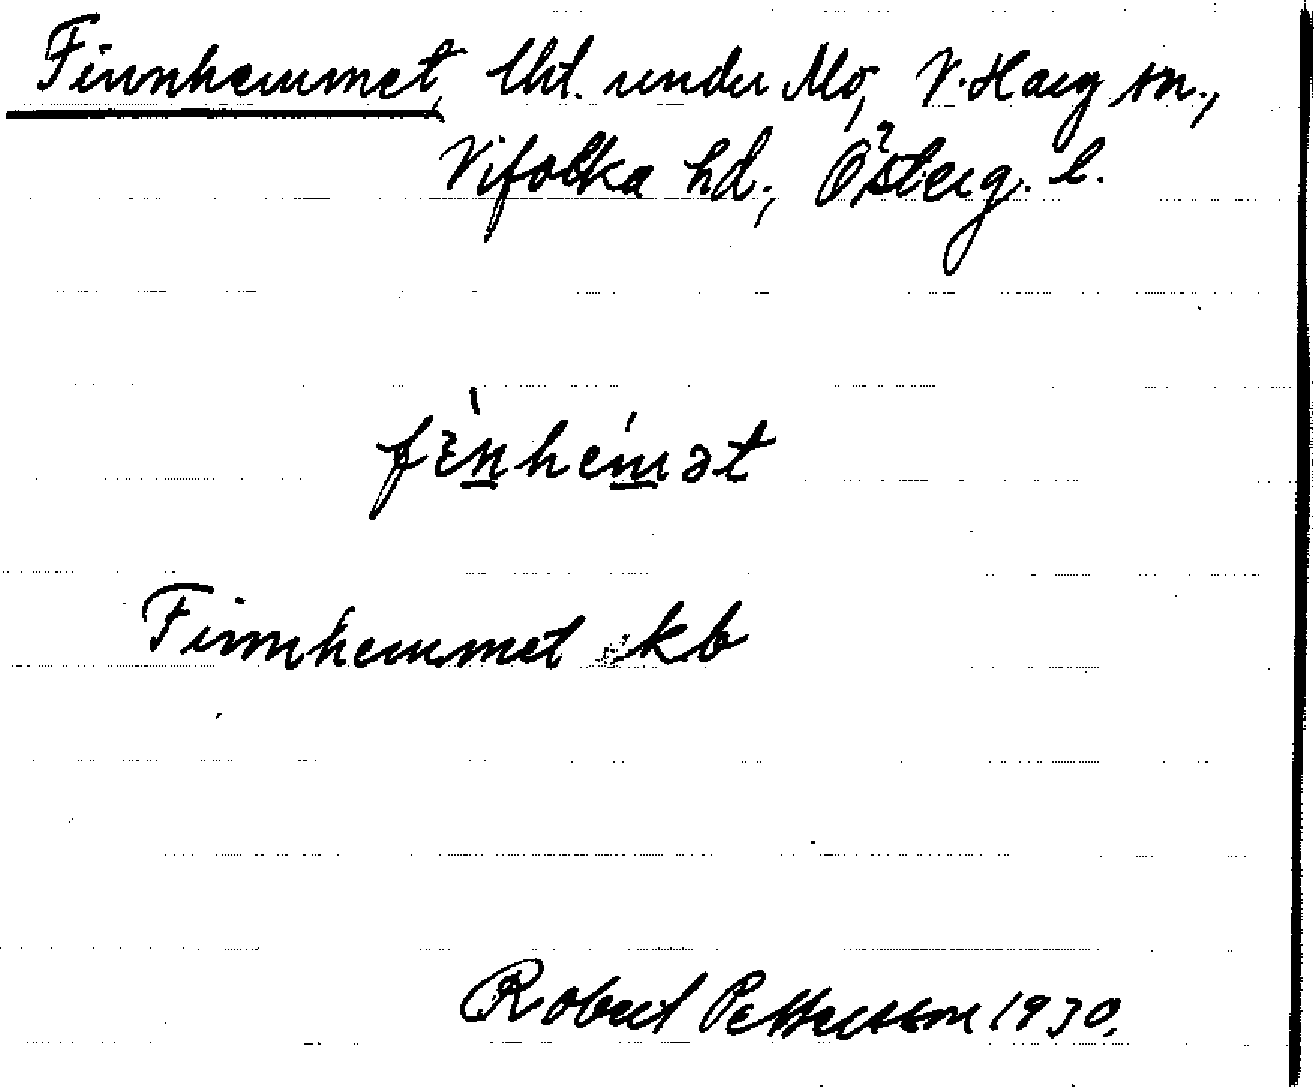 Finnhemmet, lht. under Mo, V. Harg sn.,
Vifolka hd., Österg. l.
fìnhemət
Finnhemmet kb
Robert Pettersson 1930.